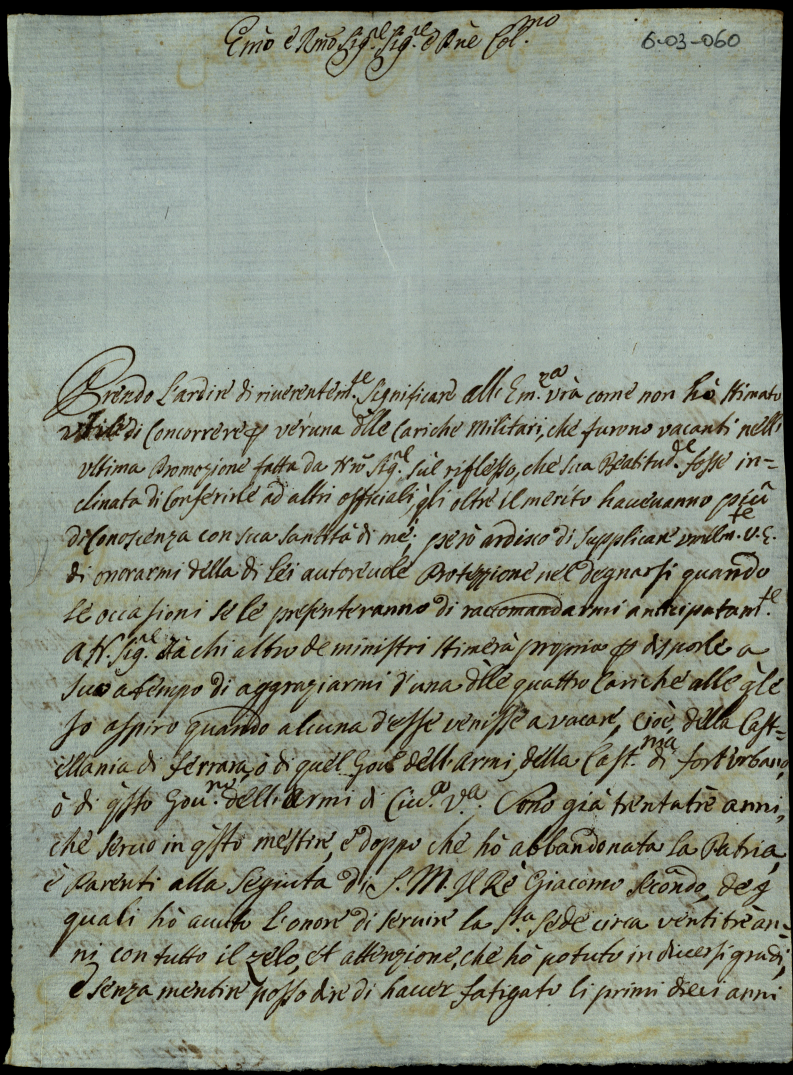 Emo è Rmo Sig.re Sig.re è Pñe Col.mo
6-03-060
Prendo L'ardire di riuerentem.te Significare all' Em.za vrà come non hò stimato
utile di Concorrere p veruna dlle Cariche Militari, che furono vacanti nell'
vltima Promozione fatta da Nrò Sig.re sul riflesso, che sua Beatitud.e fosse in=
clinata di Conferirle ad altri officiali, gli oltre il merito haueuanno più
di Conoscenza con sua Santità di mé; però ardisco di supplicare vmilm.te V.E.
di onorarmi della di lei autoreuole Protezzione nel degnarsi quando
le occasioni se le presenteranno di raccomandarmi anticipatam.te
a N. Sig.re ò à chi altro de ministri stimerà proprio p disporle a
suo tempo di aggraziarmi d'una dlle quattro Cariche alle qle
Io aspiro quando alcuna d'esse venisse a vacare, Cioè della Cast=
ellania di Ferrara, ò di quel Gou.o dell'armi, della Cast.nza di fort'urbano,
ò di qsto Gou.no dell'Armi di Ciu.a V.a. Sono già trentatrè anni,
che seruo in qsto mestire, e doppo che hò abbandonata La Patria,
è Parenti alla Seguita di S. M. Il Rè Giacomo Secondo, de q
quali hò auuto L'onore di seruire la S.ta Sede circa ventitrè an=
ni con tutto il zelo, et attenzione, che hò potuto in diuersi gradi,
è senza mentire posso dire di hauer fatigato li primi dieci anni